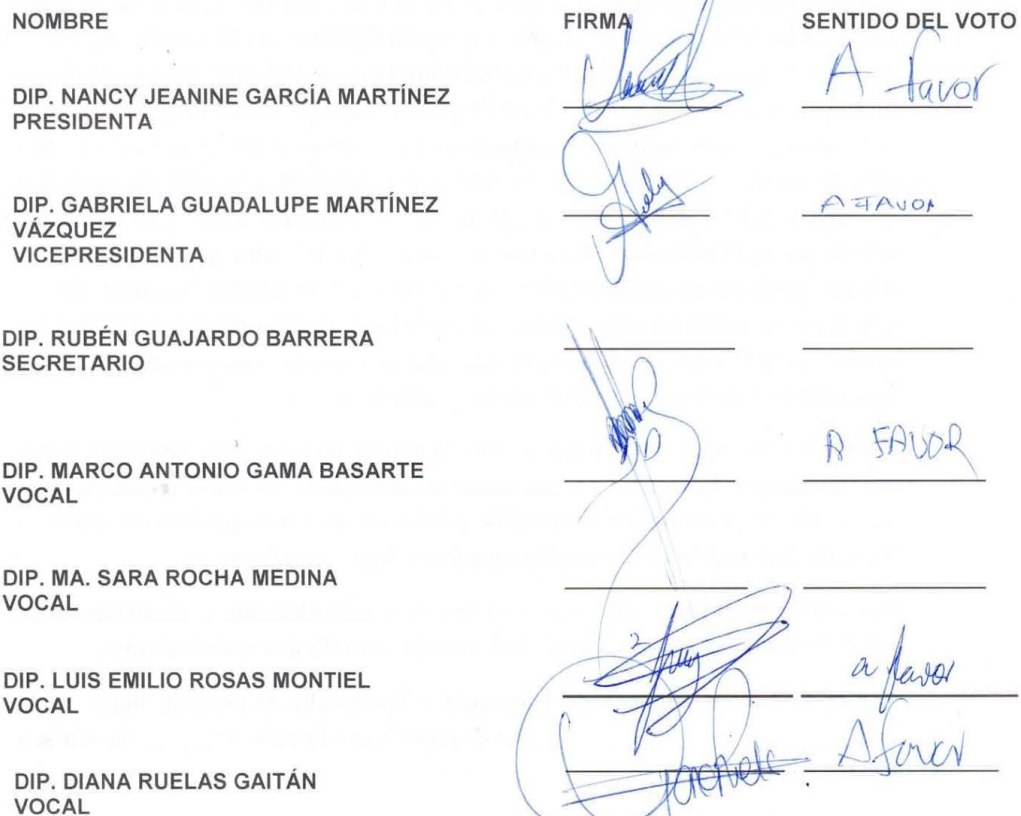 NOMBRE FIRMA SENTIDO DEL VOTO
DIP. NANCY JEANINE GARCÍA MARTÍNEZ A favor
PRESIDENTA
DIP. GABRIELA GUADALUPE MARTÍNEZ A FAVOR
VÁZQUEZ
VICEPRESIDENTA
DIP. RUBÉN GUAJARDO BARRERA
SECRETARIO
DIP. MARCO ANTONIO GAMA BASARTE A FAVOR
VOCAL
DIP. MA. SARA ROCHA MEDINA
VOCAL
DIP. LUIS EMILIO ROSAS MONTIEL a favor
VOCAL
DIP. DIANA RUELAS GAITÁN A favor
VOCAL